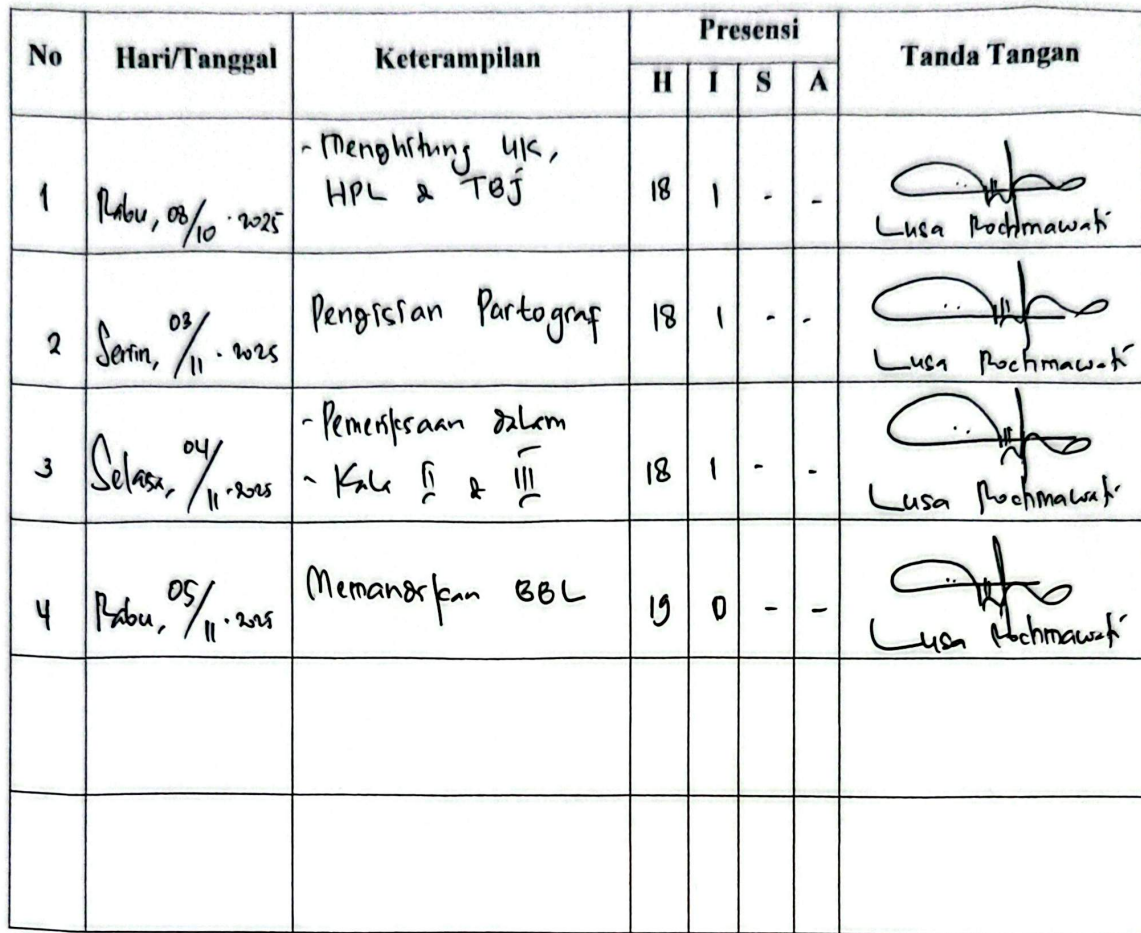 No Hari/Tanggal Keterampilan Presensi Tanda Tangan
H I S A
1 Rabu, 08/10 · 2025 - Menghitung UK, 18 1 - -
HPL & TBJ
Lusa Rochmawati
2 Senin, 03/11 · 2025 Pengisian Partograf 18 1 - -
Lusa Rochmawati
3 Selasa, 04/11 · 2025 - Pemeriksaan dalam 18 1 - -
- Kala II & III
Lusa Rochmawati
4 Rabu, 05/11 · 2025 Memandikan BBL 19 0 - -
Lusa Rochmawati